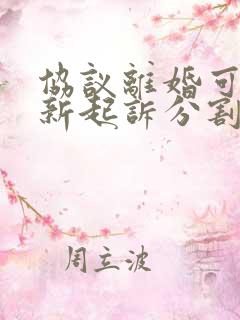 協議離婚可
新起訴分割
周立波